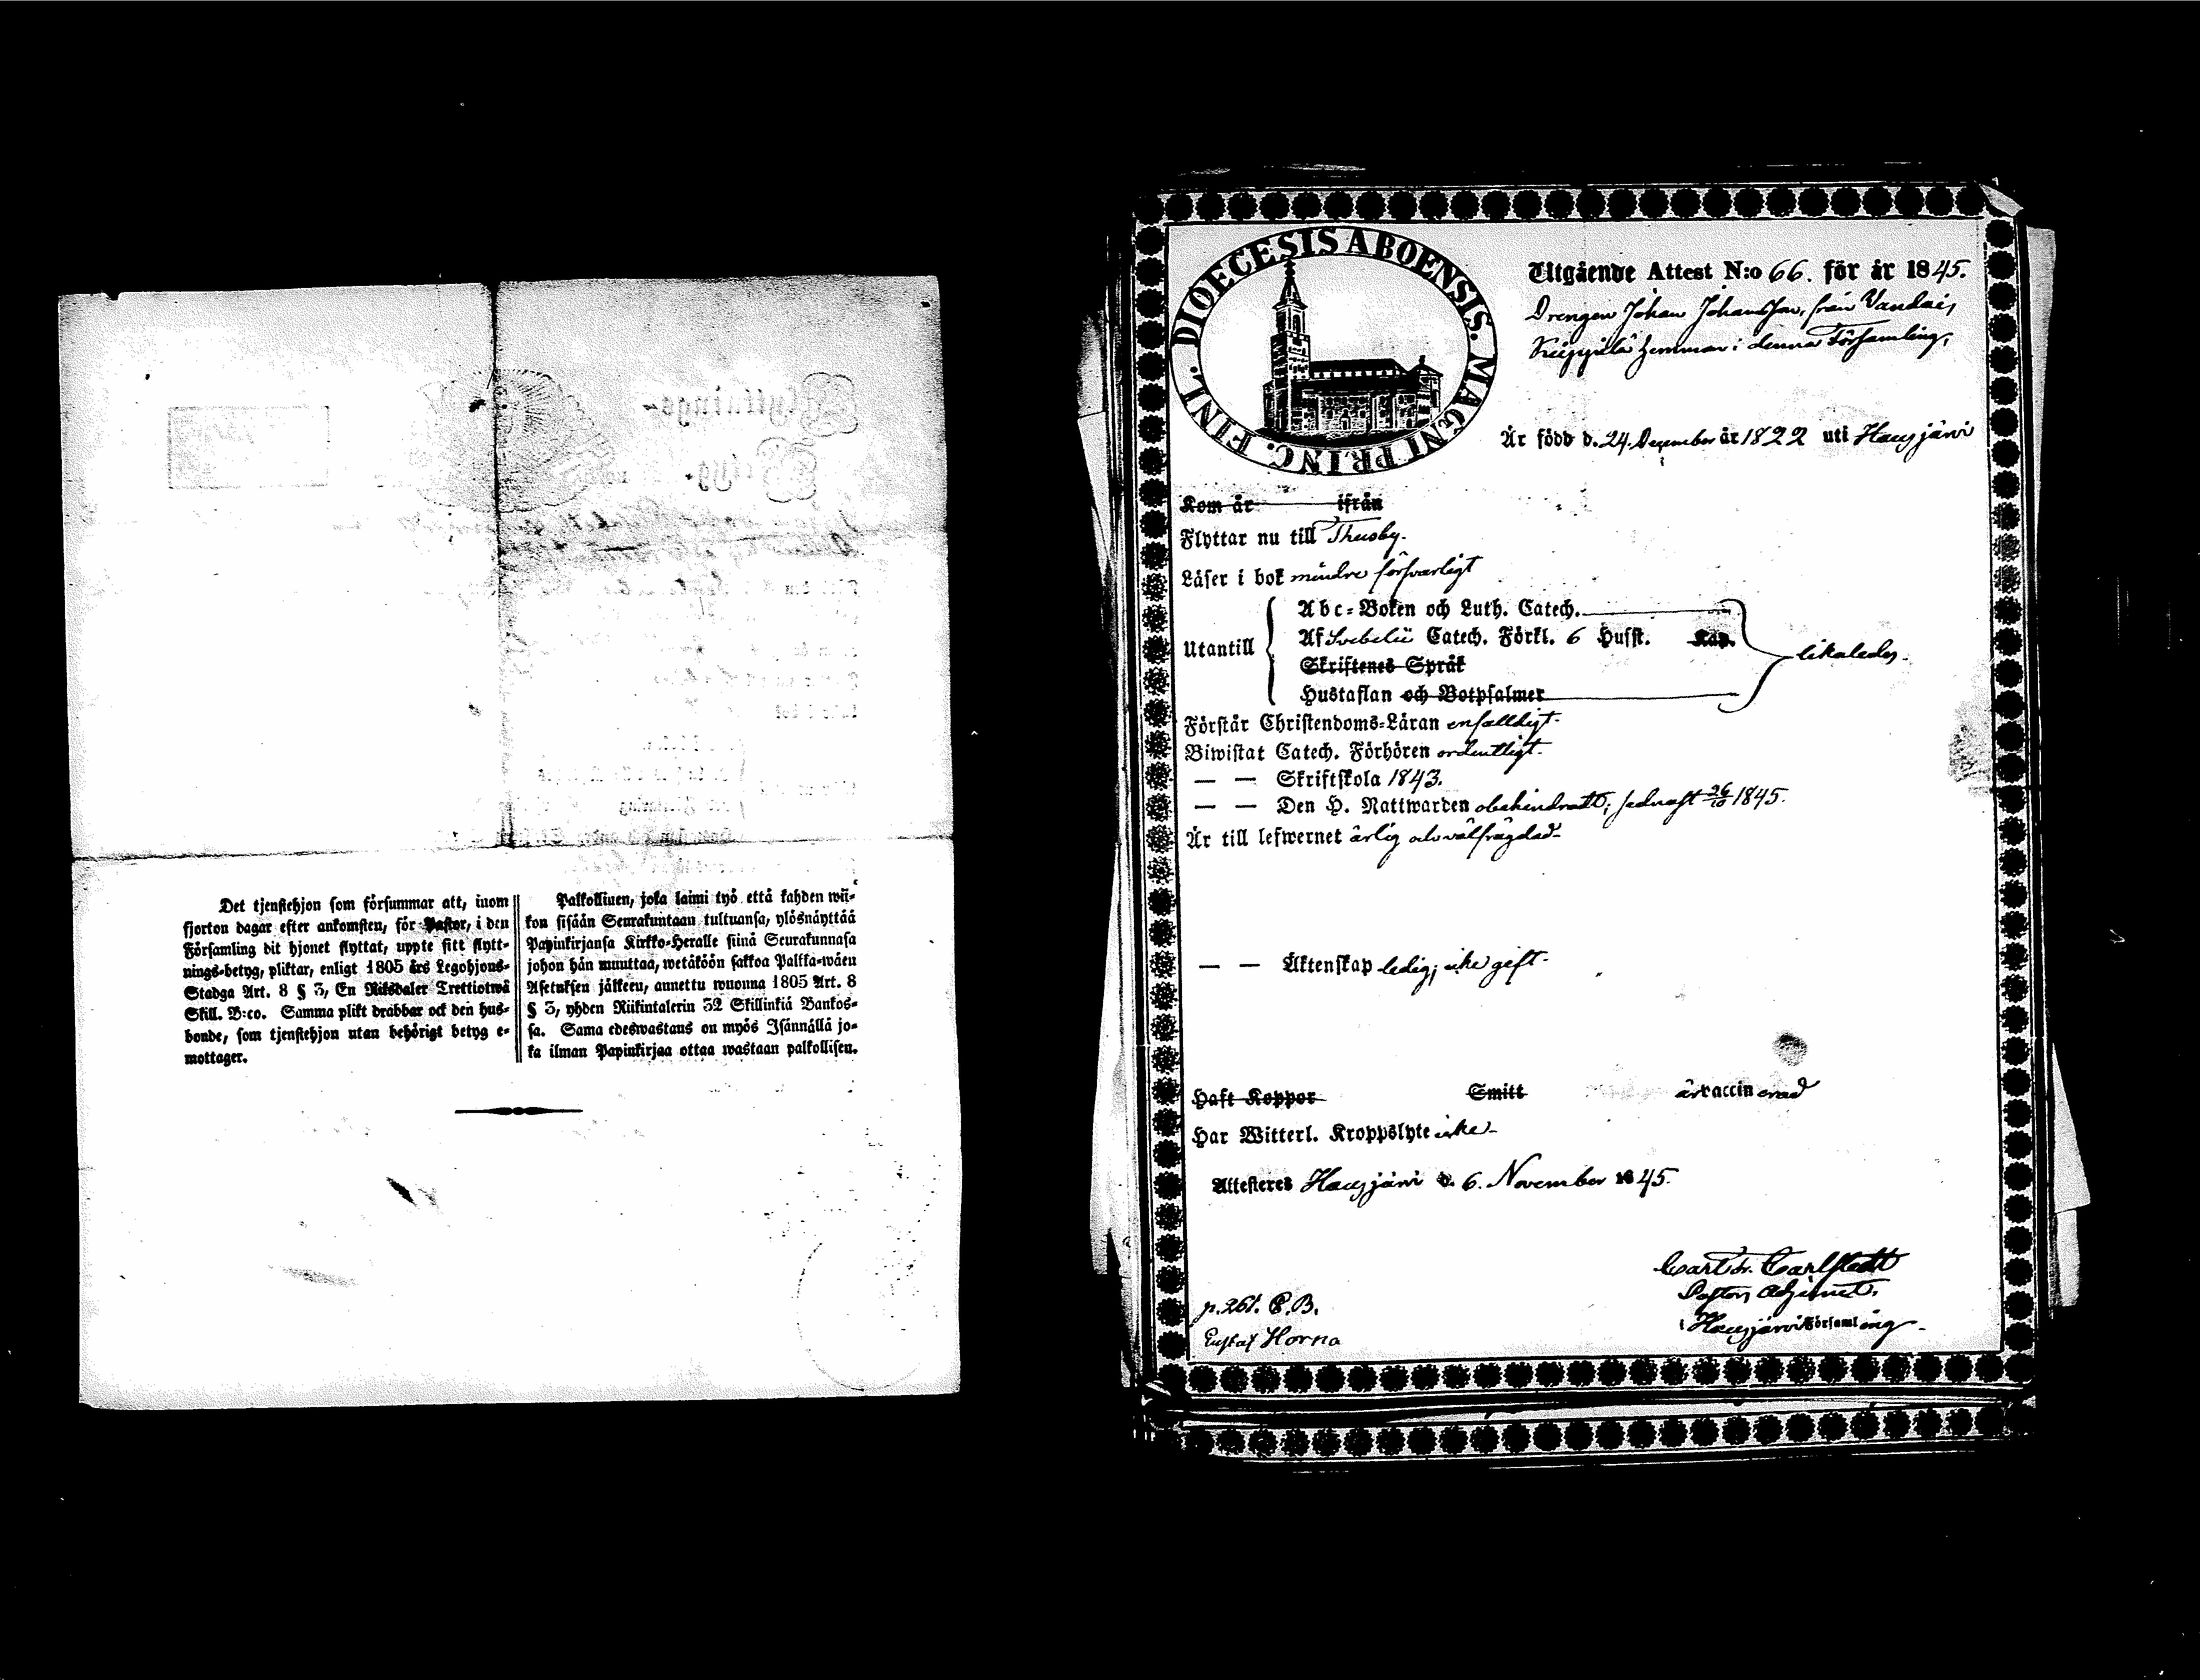 Det tjenstehjon som försummar att, inom
fjorton dagar efter ankomsten, för Pastor, i den
Församling dit hjonet flyttat, uppte sitt flytt-
nings-betyg, pliktar, enligt 1805 års Legohjons-
Stadga Art. 8 § 3, En Riksdaler Trettiotwå
Skill. B:co. Samma plikt drabbar ock den hus-
bonde, som tjenstehjon utan behörigt betyg e-
mottager.
Palkollinen, joka laimi lyö että kahden wii-
kon sisään Seurakuntaan tultuansa, ylösnäyttää
Papinkirjansa Kirkko-Heralle siinä Seurakunnasa
johon hän muuttaa, wetäköön sakkoa Palkka-wäen
Asetuksen jälkeen, annettu wuonna 1805 Art. 8
§ 3, yhden Riikintalerin 32 Skillinkiä Bankos-
sa. Sama edeswastaus on myös Isännällä jo-
ka ilman Papinkirjaa ottaa wastaan palkollisen.
DIOECESIS ABOENSIS. MAGNI PRINC. FINL.
Utgående Attest N:o 66. för år 1845.
Drengen Johan Johansson, från Vandais
hemman i denna Församling,
Är född d. 24. December år 1822 uti Hausjärvi
Kom år ifrån
Flyttar nu till Thusby.
Läser i bok mindre försvarligt
Utantill
Abc-Boken och Luth. Catech.
Af Svebelii Catech. Förkl. 6 Hufst. Kap.
Skriftenes Språk
Hustaflan och Botpsalmer
likaledes.
Förstår Christendoms-Läran enfalldigt.
Biwistat Catech. Förhören ordentligt.
— — Skriftskola 1843.
— — Den H. Nattwarden obehindradt, sednast 26/10 1845.
Är till lefwernet ärlig och välfrägdad.
— — Äktenskap ledig, icke gift.
Haft Koppor Smitt är vaccinerad
Har Witterl. Kroppslyte icke.
Attesteres Hausjärvi d. 6. November 1845.
Carl Fr. Carlstedt
Pastors Adjunct.
i Hausjärvi Församling.
p. 261. C. B.
Gustaf Horna